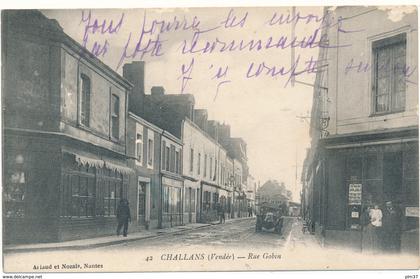 Vous pourrez les envoyer
par poste recommandé
J'y compte
42 CHALLANS (Vendée) — Rue Gobin
Artaud et Nozais, Nantes